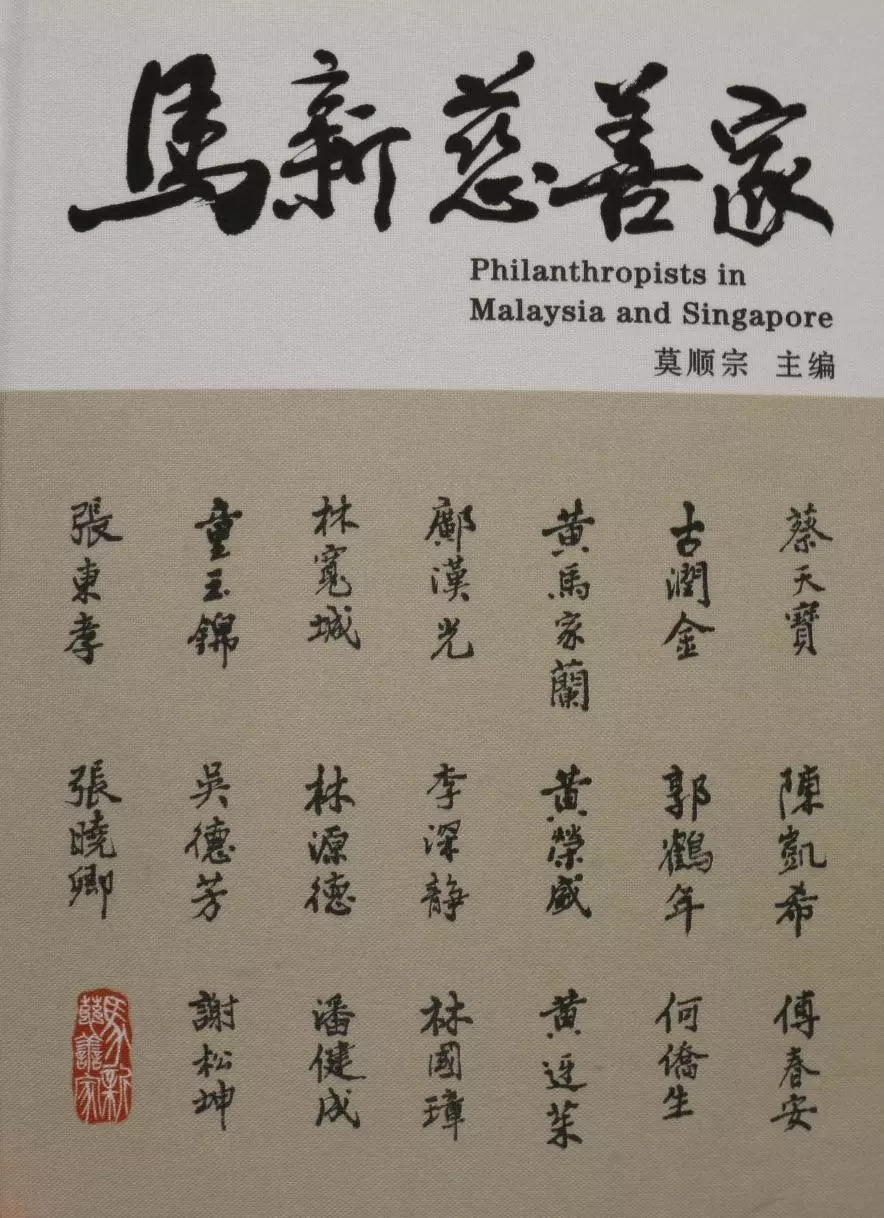 馬新慈善家
Philanthropists in
Malaysia and Singapore
莫顺宗 主编
蔡天寶
陳凱希
傅春安
古潤金
郭鶴年
何僑生
黄馬家蘭
黄榮盛
黄迓茱
鄺漢光
李深静
林國璋
林寬城
林源德
潘健成
童玉錦
吳德芳
謝松坤
張東孝
張曉卿
馬新
慈善家